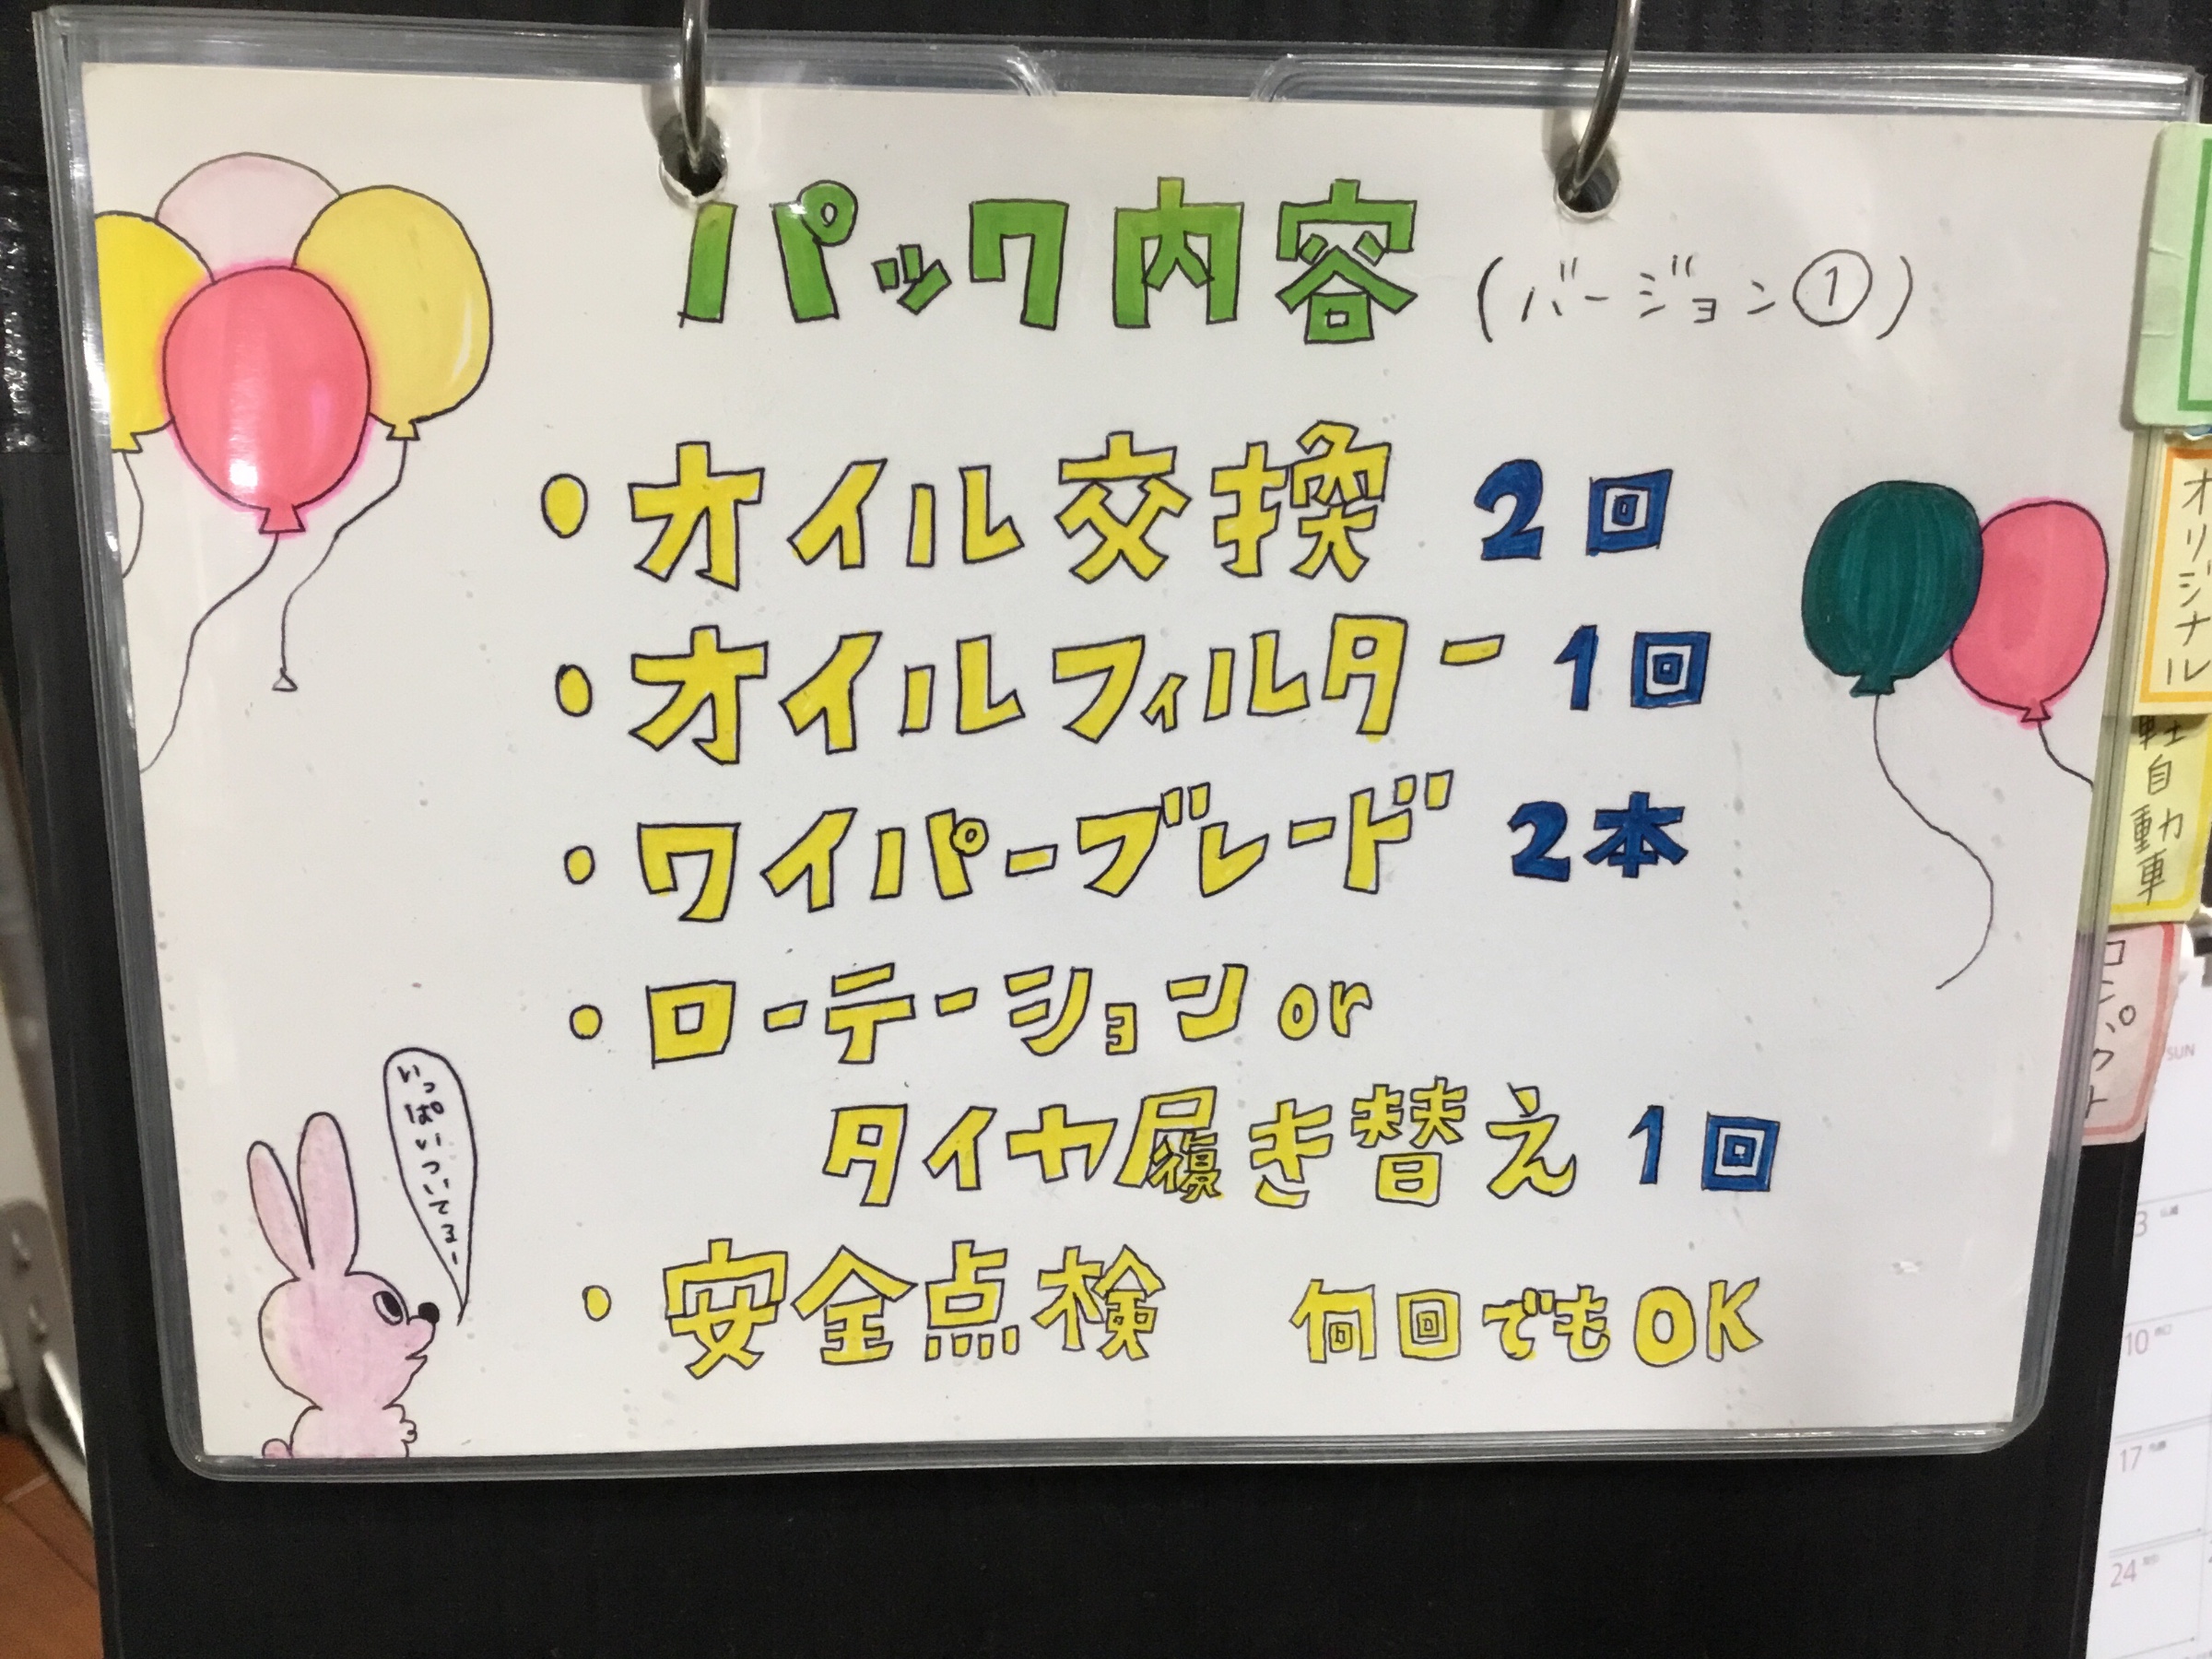 パック内容 (バージョン①)
・オイル交換 2回
・オイルフィルター 1回
・ワイパーブレード 2本
・ローテーションor
タイヤ履き替え 1回
・安全点検 何回でもOK
いっぱいついてるー
オリジナル
軽自動車
コンパクト
SUN
3
10
17
24